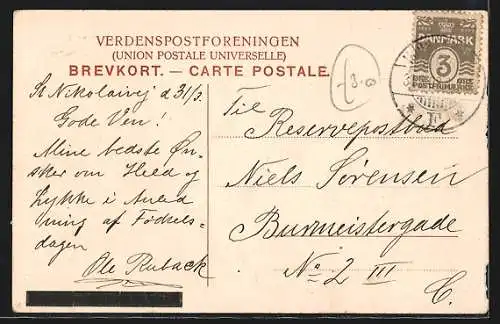 VERDENSPOSTFORENINGEN
(UNION POSTALE UNIVERSELLE)
BREVKORT. — CARTE POSTALE.
DANMARK
3
ØRE ØRE
POSTFRIMÆRKE
St Nikolaivej d 31/3.
Gode Ven!
Mine bedste Øn-
sker om Held og
Lykke i Anled
ning af Fødsels-
dagen
Ole Ruback
Til
Reservepostbud
Niels Sørensen
Burmeistergade
No 2 III
C.